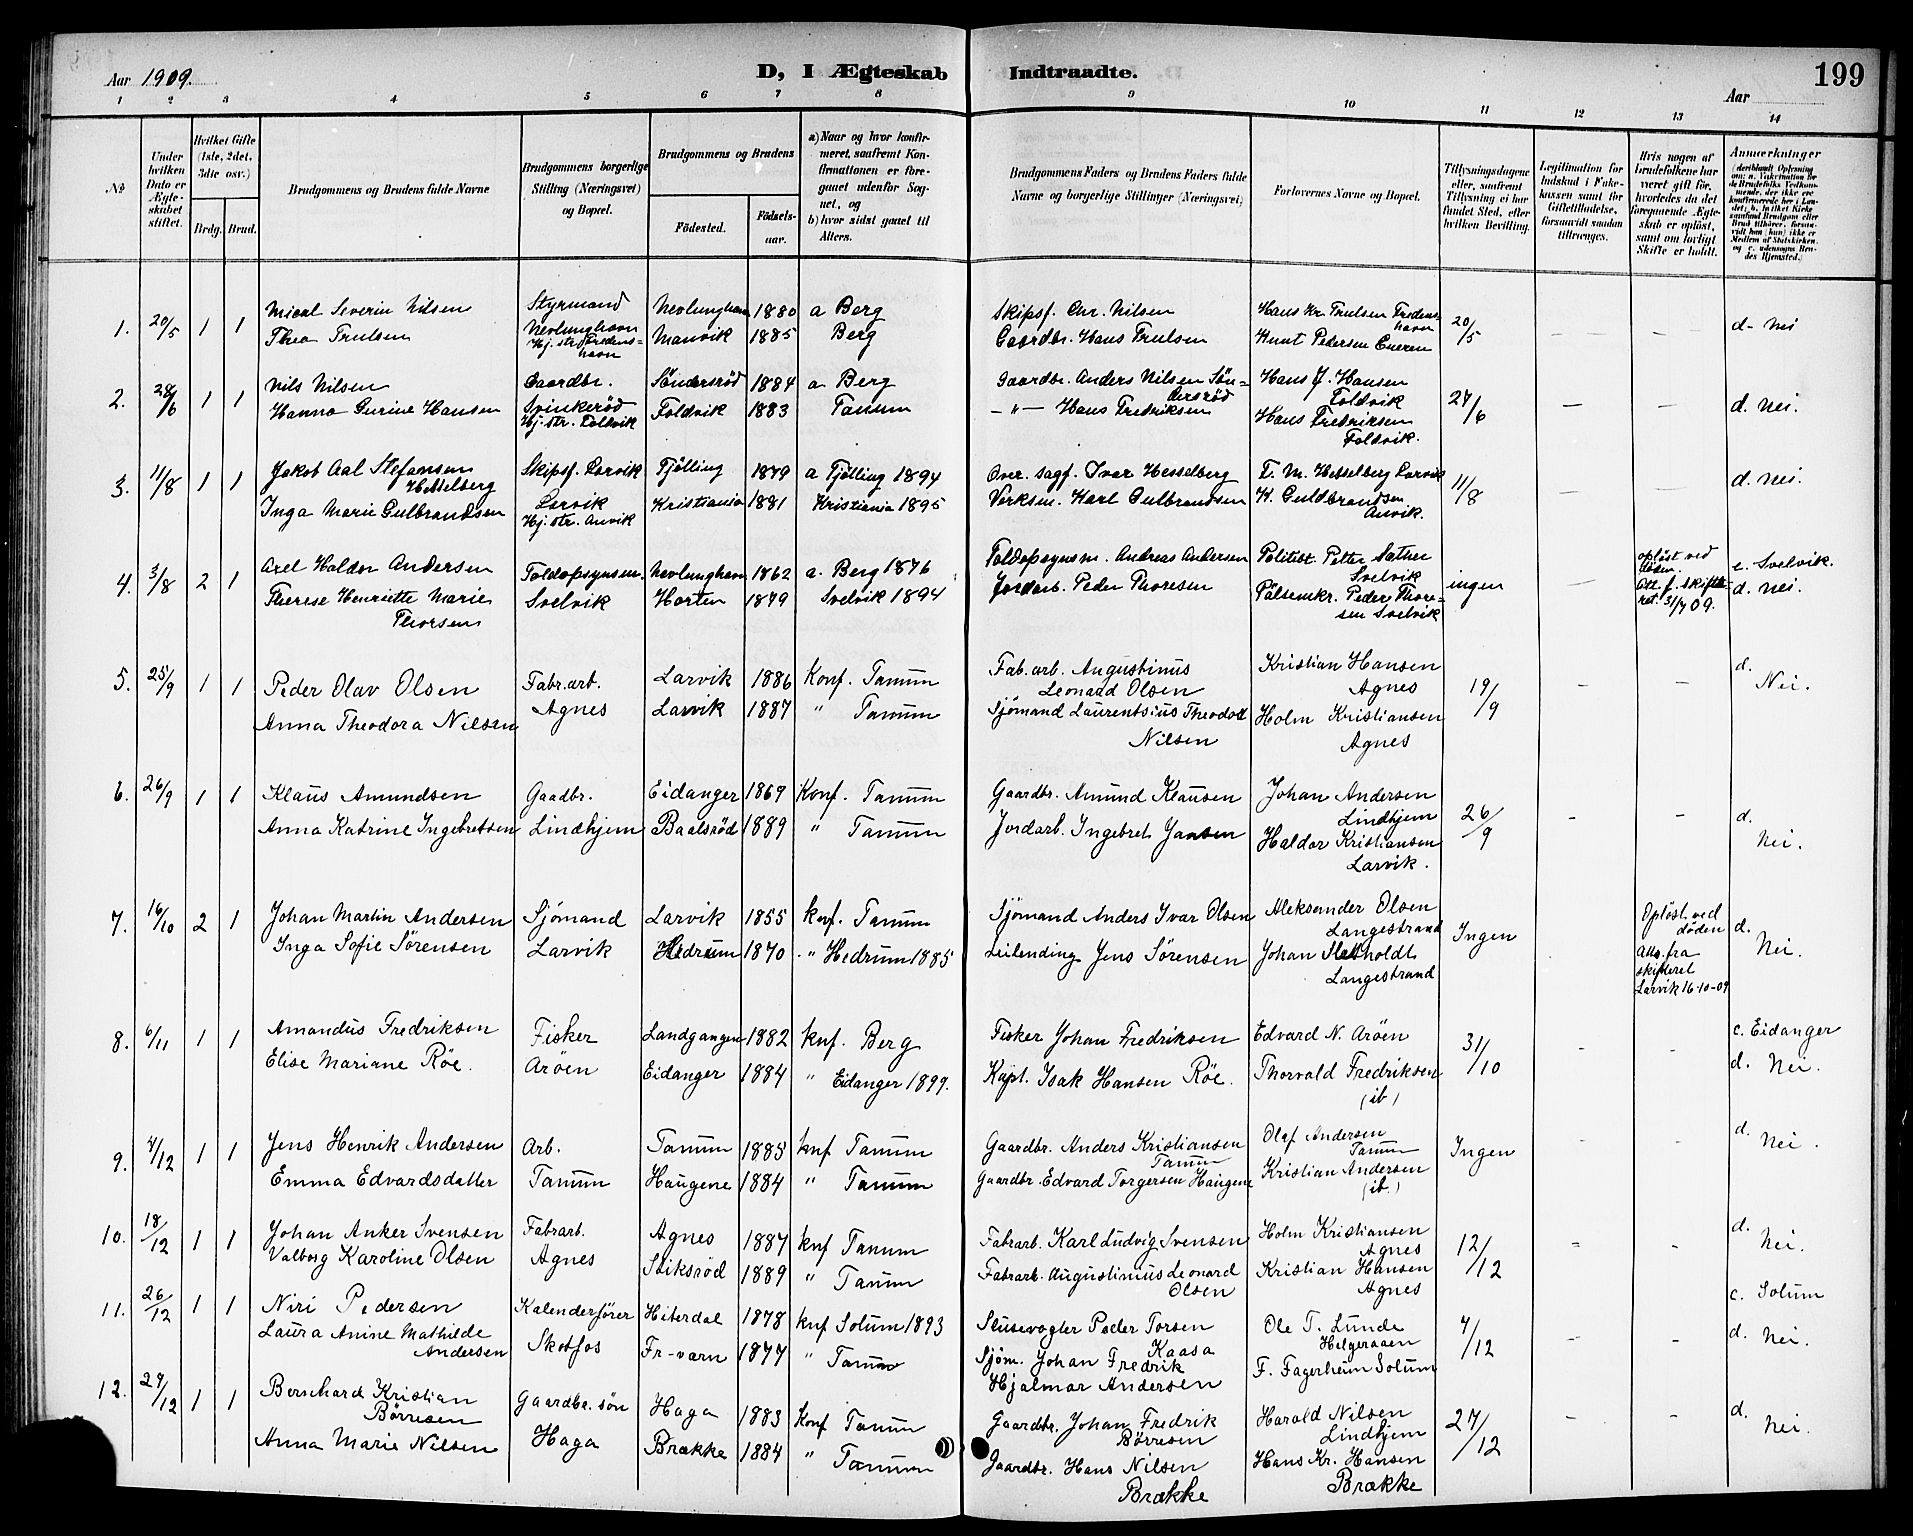 Aar 1909.
D, I Ægteskab Indtraadte.
199
Aar
1 2 3 4 5 6 7 8 9 10 11 12 13 14
No
Under hvilken Dato er Ægteskabet stiftet.
Hvilket Gifte (1ste, 2det, 3die osv.)
Brdg. Brud.
Brudgommens og Brudens fulde Navne
Brudgommens borgerlige Stilling (Næringsvei) og Bopæl.
Brudgommens og Brudens
Fødested.
Fødselsaar.
a) Naar og hvor konfirmeret, saafremt Konfirmationen er foregaaet udenfor Sognet, og
b) hvor sidst gaaet til Alters.
Brudgommens Faders og Brudens Faders fulde Navne og borgerlige Stillinger (Næringsvei)
Forlovernes Navne og Bopæl.
Tillysningsdagene eller, saafremt Tillysning ei har fundet Sted, efter hvilken Bevilling.
Legitimation for Indskud i Enkekassen samt for Giftetilladelse, forsaavidt saadan tiltrænges.
Hvis nogen af Brudefolkene har været gift før, hvorledes da det foregaaende Ægteskab er opløst, samt om lovligt Skifte er holdt.
Anmærkninger
1. 20/5 1 1 Mical Severin Nilsen
Thea Trulsen
Styrmand
Nevlunghavn
Hj. str. Fredenshavn
Nevlunghavn 1880 a Berg
Manvik 1885 Berg
Skipsf. Chr. Nilsen
Gaardbr. Hans Trulsen
Hans Kr. Trulsen Fredenshavn
Knut Pedersen
20/5 – – d- Nei
2. 28/6 1 1 Nils Nilsen
Hanna Gurine Hansen
Gaardbr.
Svinkerød
Hj. str. Foldvik
Söndersröd 1884 a Berg
Foldvik 1883 Tanum
Gaardbr. Anders Nilsen Söndersröd
–"– Hans Fredriksen
Hans J. Hansen
Foldvik
Hans Fredriksen
Foldvik.
27/6 – – d. Nei.
3. 11/8 1 1 Jakob Aal Stefansen
Hesselberg
Inga Marie Gulbrandsen
Skipsf. Larvik
Larvik
Hj. str. Anvik
Tjölling 1879 a Tjölling 1894
Kristiania 1881 Kristiania 1895
Over. sagf. Ivar Hesselberg
Verksm. Karl Gulbrandsen
T. M. Hesselberg Larvik
K. Guldbrandsen
Anvik.
11/8 – – d. Nei.
4. 3/8 2 1 Axel Haldor Andersen
Therese Henriette Marie
Thorsen
Toldopsynsm.
Svelvik
Nevlunghavn 1862 a. Berg 1876
Horten 1879 Svelvik 1894
Toldopsynsm. Andreas Andersen
Jordarb. Peder Thoresen
Politibt. Petter Sather
Svelvik
Pölsemkr. Peder Thoresen Svelvik
ingen – opløst ved
døden.
Att. f. skifteret. 31/7 09.
c. Svelvik.
d. Nei.
5. 25/9 1 1 Peder Olav Olsen
Anna Theodora Nilsen
Fabr.arb.
Agnes
Larvik 1886 Konf. Tanum
Larvik 1887 " Tanum
Fab. arb. Augustinus
Leonard Olsen
Sjømand Laurentsius Theodor
Nilsen
Kristian Hansen
Agnes
Holm Kristiansen
Agnes
19/9 – – d. Nei.
6. 26/9 1 1 Klaus Amundsen
Anna Katrine Ingebretsen
Gaadbr.
Lindhjem
Eidanger 1869 Konf. Tanum
Baalsrød 1889 " Tanum
Gaardbr. Amund Klausen
Jordarb. Ingebret Jansen
Johan Andersen
Lindhjem
Haldor Kristiansen
Larvik.
26/9 – – d. Nei.
7. 16/10 2 1 Johan Martin Andersen
Inga Sofie Sørensen
Sjømand
Larvik
Larvik 1855 knf. Tanum
Hedrum 1870 " Hedrum 1885
Sjømand Anders Ivar Olsen
Leilending Jens Sørensen
Aleksander Olsen
Langestrand
Johan
Langestrand
Ingen
Opløst ved
døden
Atts. fra
skifteret
Larvik 16-10-09
d. Nei.
8. 6/11 1 1 Amandus Fredriksen
Elise Mariane Røe.
Fisker
Arøen
Landgangen 1882 knf. Berg
Eidanger 1884 " Eidanger 1899.
Fisker Johan Fredriksen
Kapt. Isak Hansen Røe.
Edvard N. Arøen
Thorvald Fredriksen
(ib)
31/10 – – c. Eidanger
d. Nei.
9. 4/12 1 1 Jens Henrik Andersen
Emma Edvardsdatter
Arb.
Tanum
Tanum 1885 knf Tanum
Haugene 1884 " Tanum
Gaardbr. Anders Kristiansen
Tanum
Gaardbr. Edvard Torgersen Haugene
Olaf Andersen
Tanum
Kristian Andersen
(ib.)
Ingen – – d. Nei.
10. 18/12 1 1 Johan Anker Svensen
Valborg Karoline Olsen
Fabrarb.
Agnes
Agnes 1887 knf Tanum
Stiksrød 1889 " Tanum
Fabrarb. Karl Ludvig Svensen
Fabrarb. Augustinius Leonard
Olsen
Holm Kristiansen
Agnes
Kristian Hansen
Agnes
12/12 – – d. Nei.
11. 26/12 1 1 Niri Pedersen
Laura Anine Mathilde
Andersen
Kalenderfører
Skotfos
Hiterdal 1878 knf Solum 1893
Fr-værn 1877 " Tanum
Slusevogter Peder Torsen
Kaasa
Sjøm. Johan Fredrik
Hjalmar Andersen
Ole T. Lunde
Helgeraaen
F. Fagerheim Solum
4/12 – – c. Solum
d. Nei.
12. 27/12 1 1 Bernhard Kristian
Börresen
Anna Marie Nilsen
Gaardbr. søn
Haga
Haga 1883 Konf Tanum
Brække 1884 " Tanum
Gaardbr. Johan Fredrik
Börresen
Gaardbr. Hans Nilsen
Brække
Harald Nilsen
Lindhjem
Hans Kr. Hansen
Brække
27/12 – – d. Nei.